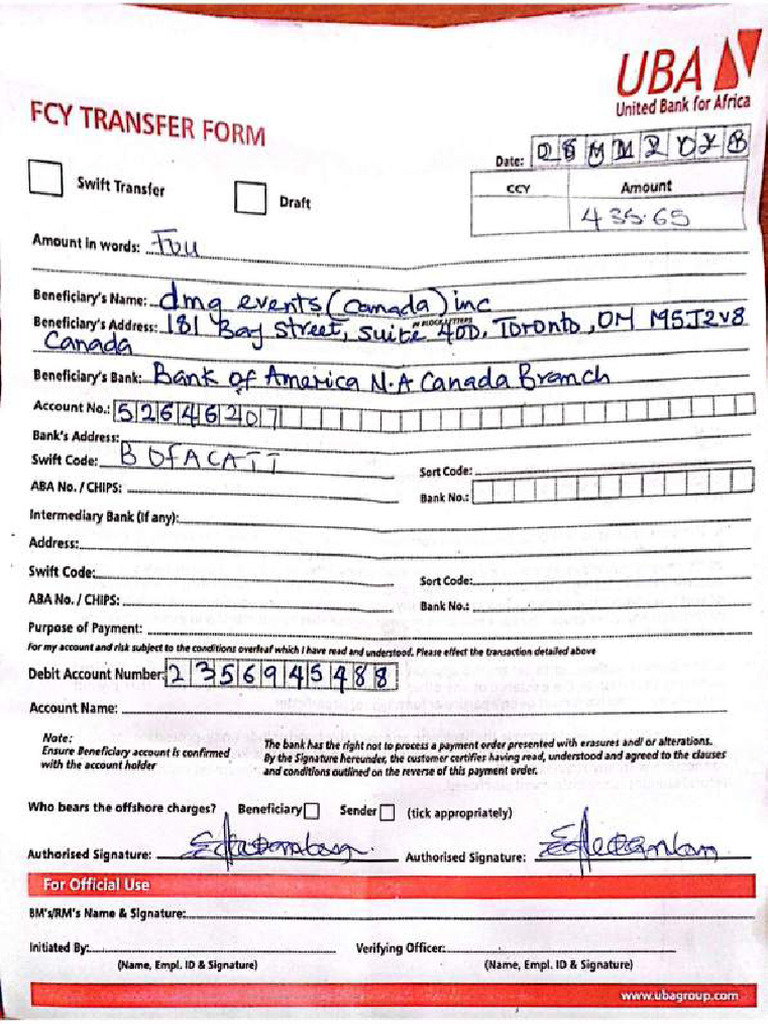 UBA
United Bank for Africa
FCY TRANSFER FORM
Date:
Swift Transfer
Draft
CCY Amount
435.65
Amount in words:
Beneficiary's Name: dmg events (canada) inc
Beneficiary's Address: 181 Bay Street, Suite 400, Toronto, ON M5J2V8
Canada
Beneficiary's Bank: Bank of America N.A Canada Branch
Account No.: 52646207
Bank's Address:
Swift Code: BOFACATT Sort Code:
ABA No. / CHIPS: Bank No.:
Intermediary Bank (If any):
Address:
Swift Code: Sort Code:
ABA No. / CHIPS: Bank No.:
Purpose of Payment:
For my account and risk subject to the conditions overleaf which I have read and understood. Please effect the transaction detailed above
Debit Account Number: 2356945488
Account Name:
Note:
Ensure Beneficiary account is confirmed
with the account holder
The bank has the right not to process a payment order presented with erasures and/ or alterations.
By the Signature hereunder, the customer certifies having read, understood and agreed to the clauses
and conditions outlined on the reverse of this payment order.
Who bears the offshore charges? Beneficiary Sender (tick appropriately)
Authorised Signature: Authorised Signature:
For Official Use
BM's/RM's Name & Signature:
Initiated By: Verifying Officer:
(Name, Empl. ID & Signature) (Name, Empl. ID & Signature)
www.ubagroup.com